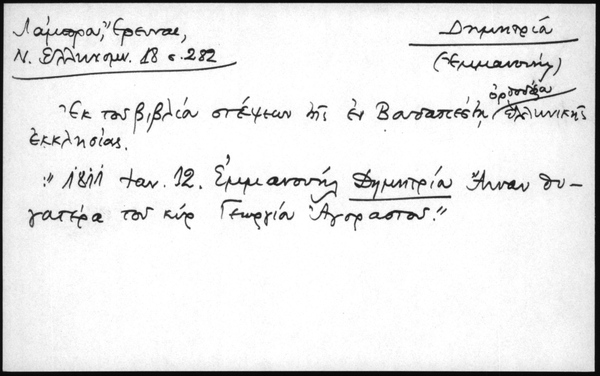 Λάμπρου, "Ερευναι,
Ν. Ελληνομν. 18 σ. 282
Δημητρία
(Ἐμμανουήλ)
Ἐκ του βιβλίου στέψεων της ἐν Βουδαπέστῃ ὀρθοδόξου Ἑλληνικῆς
ἐκκλησίας.
:"1811 Ιαν. 12. Ἐμμανουήλ Δημητρίου Ἄνναν θυ-
γατέρα του κύρ Γεωργίου Ἀγοραστου."